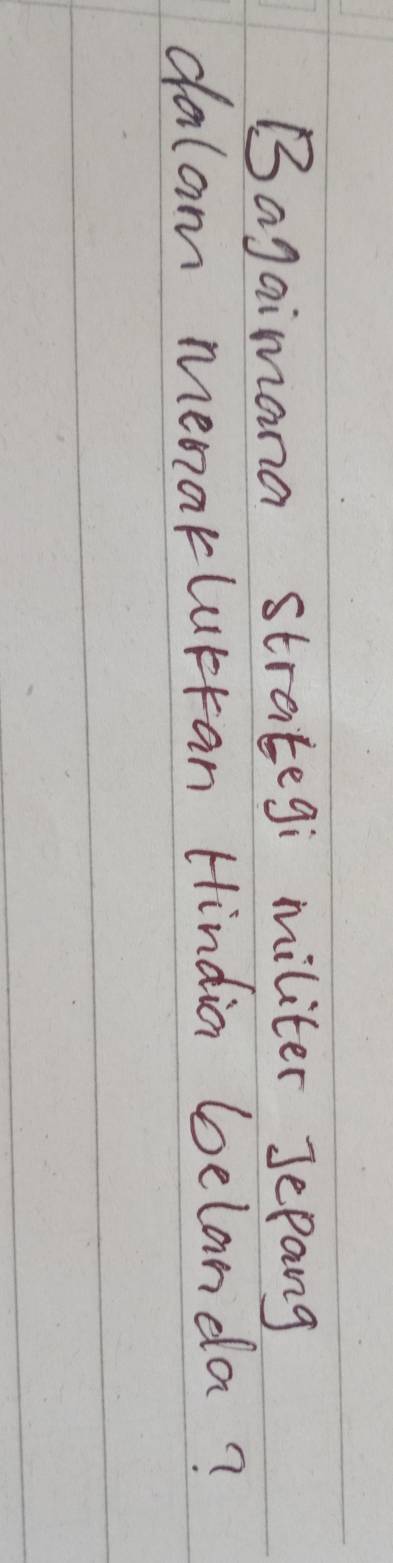 Bagaimana strategi militer Jepang
dalam menaklukkan Hindia belanda ?